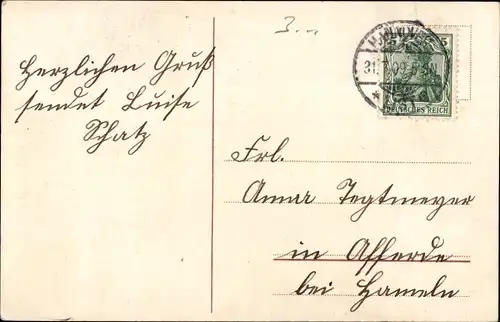 3...
Herzlichen Gruß
sendet Luise
Schatz
31.7.09.
5
DEUTSCHES REICH
Frl.
Anna Tegtmeyer
in Afferde
bei Hameln